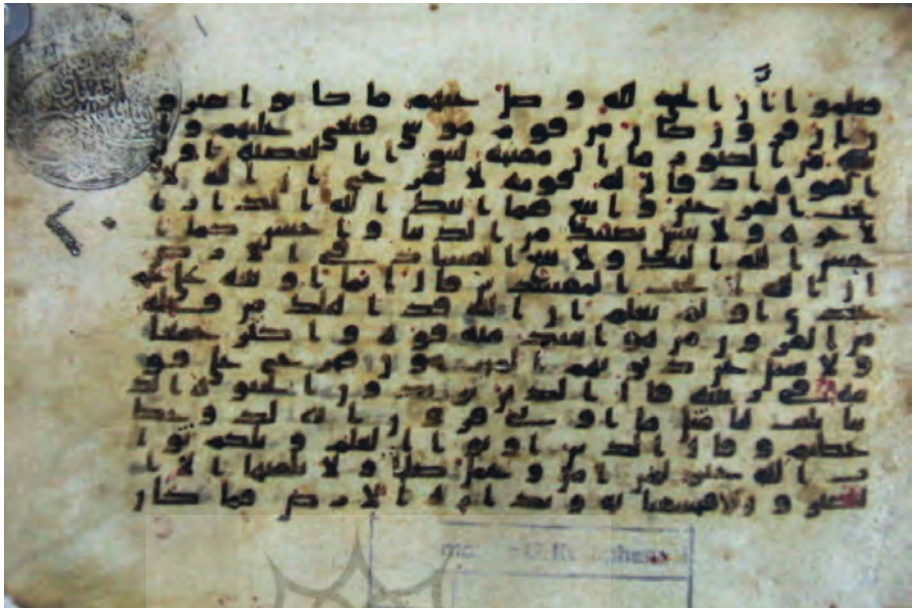 فعلموا ان الحق لله و ضل عنهم ما كانوا يفترو
ن ان قرون كان من قوم موسى فبغى عليهم و ا
تينه من الكنوز ما ان مفتحه لتنوا بالعصبه اولي
القوه اذ قال له قومه لا تفرح ان الله لا
يحب الفرحين و ابتغ فيما اتيك الله الدار ا
لاخره و لا تنس نصيبك من الدنيا و احسن كما ا
حسن الله اليك و لا تبغ الفساد في الارض
ان الله لا يحب المفسدين قال انما اوتيته على علم
عندي او لم يعلم ان الله قد اهلك من قبله
من القرون من هو اشد منه قوه و اكثر جمعا
و لا يسئل عن ذنوبهم المجرمون فخرج على قو
مه في زينته قال الذين يريدون الحيوه الد
نيا يليت لنا مثل ما اوتي قرون انه لذو حظ
عظيم و قال الذين اوتوا العلم ويلكم ثوا
ب الله خير لمن امن و عمل صلحا و لا يلقيها الا ا
لصبرون فخسفنا به و بداره الارض فما كان